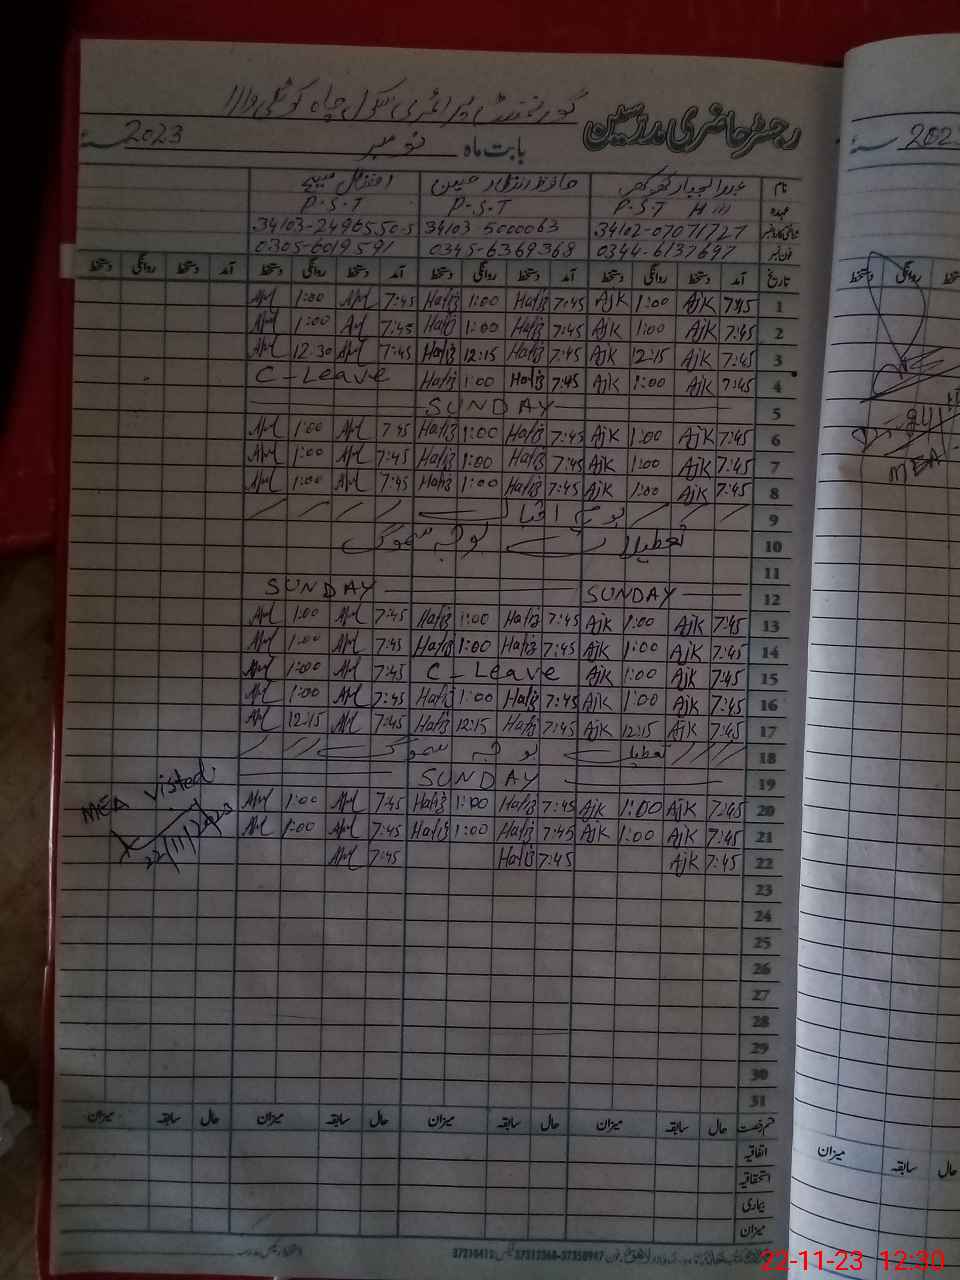 گورنمنٹ پرائمری سکول چاہ کوٹلی والا
رجسٹر حاضری مدرسین
بابت ماہ نومبر 2023
نام عبدالجبار کھوکھر حافظ انتظار حسین افضال مسیح
عہدہ P.S.T H P.S.T P.S.T
34102-07071727 34103 5000063 34103-2496550-5
فون نمبر 0344-6137697 0345-6369368 0305-6019591
تاریخ آمد دستخط روانگی دستخط آمد دستخط روانگی دستخط آمد دستخط روانگی دستخط آمد دستخط روانگی دستخط
1 7:45 AjK 1:00 AjK 7:45 Hafiz 1:00 Hafiz 7:45 1:00
2 7:45 AjK 1:00 AjK 7:45 Hafiz 1:00 Hafiz 7:45 1:00
3 7:45 AjK 12:15 AjK 7:45 Hafiz 12:15 Hafiz 7:45 12:30
4 7:45 AjK 1:00 AjK 7:45 Hafiz 1:00 Hafiz C-Leave
5 SUNDAY
6 7:45 AjK 1:00 AjK 7:45 Hafiz 1:00 Hafiz 7:45 1:00
7 7:45 AjK 1:00 AjK 7:45 Hafiz 1:00 Hafiz 7:45 1:00
8 7:45 AjK 1:00 AjK 7:45 Hafiz 1:00 Hafiz 7:45 1:00
9
10 تعطیلات بوجہ سموگ
11
12 SUNDAY SUNDAY
13 7:45 AjK 1:00 AjK 7:45 Hafiz 1:00 Hafiz 7:45 1:00
14 7:45 AjK 1:00 AjK 7:45 Hafiz 1:00 Hafiz 7:45 1:00
15 7:45 AjK 1:00 AjK C-Leave 7:45 1:00
16 7:45 AjK 1:00 AjK 7:45 Hafiz 1:00 Hafiz 7:45 1:00
17 7:45 AjK 12:15 AjK 7:45 Hafiz 12:15 Hafiz 7:45 12:15
18 تعطیل بوجہ سموگ
19 SUNDAY
20 7:45 AjK 1:00 AjK 7:45 Hafiz 1:00 Hafiz 7:45 1:00
21 7:45 AjK 1:00 AjK 7:45 Hafiz 1:00 Hafiz 7:45 1:00
22 7:45 AjK 7:45 Hafiz 7:45
MEA visted
22/11/2023
23
24
25
26
27
28
29
30
31
حال سابقہ میزان حال سابقہ میزان حال سابقہ میزان
اتفاقیہ
استحقاقیہ
بیماری
میزان
202
دستخط روانگی دستخط
MEA
حال سابقہ میزان
22-11-23 12:30